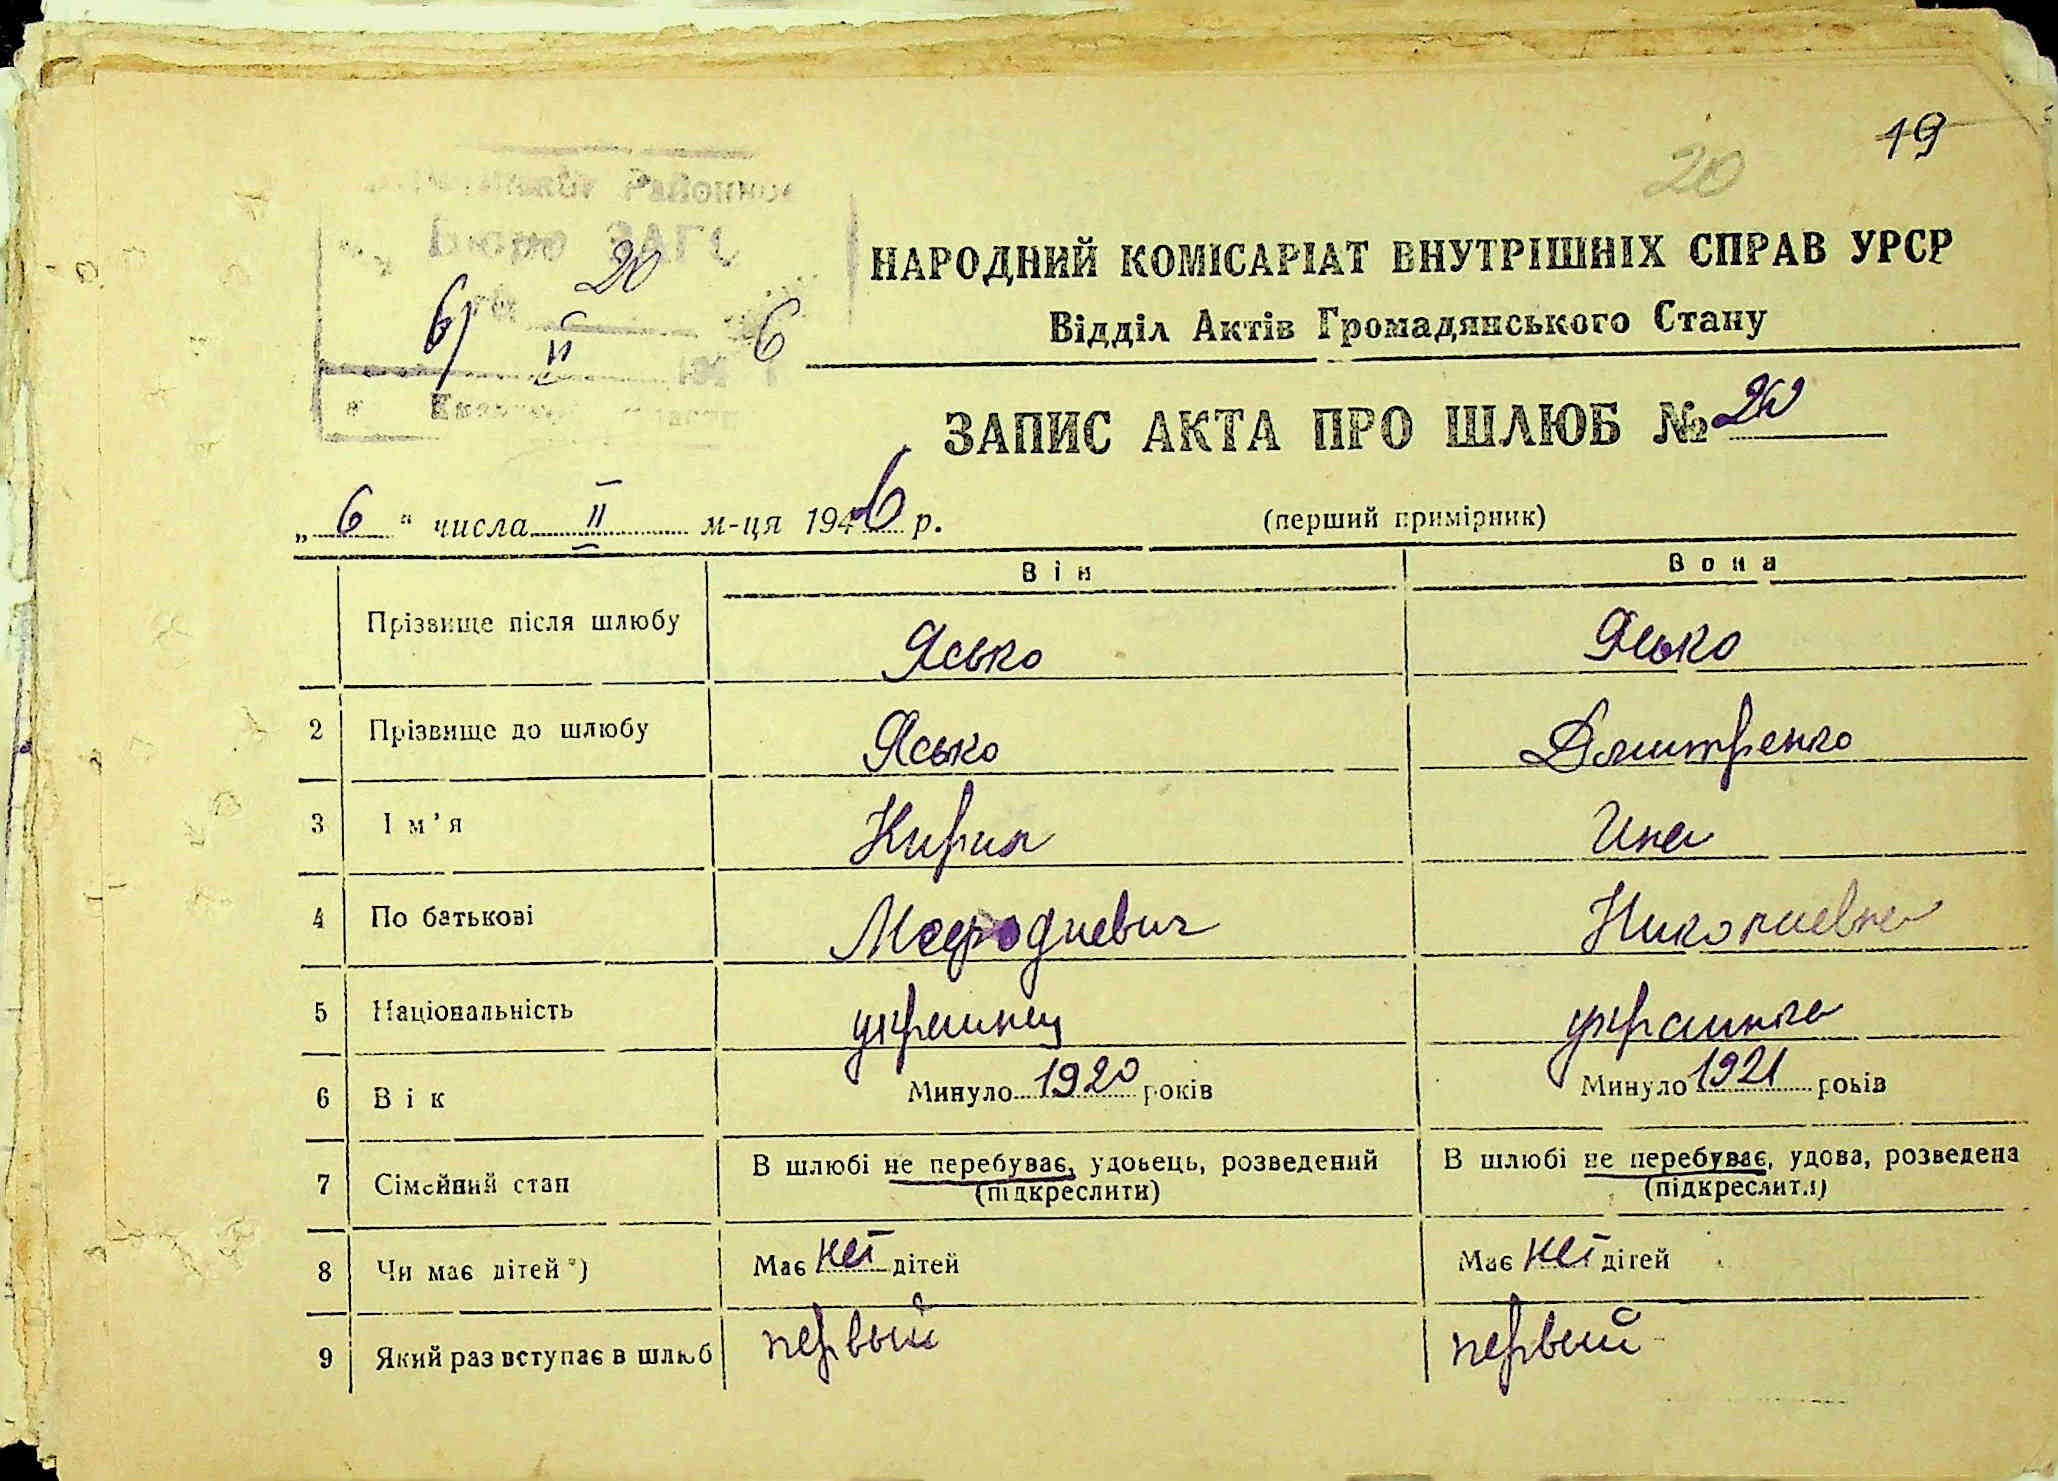 19
20
Районное
ЗАГС
20
6/II 6
НАРОДНИЙ КОМІСАРІАТ ВНУТРІШНІХ СПРАВ УРСР
Відділ Актів Громадянського Стану
ЗАПИС АКТА ПРО ШЛЮБ № 20
„ 6 “ числа II м-ця 1946 р. (перший примірник)
Він Вона
Прізвище після шлюбу Ясько Ясько
2 Прізвище до шлюбу Ясько Дмитренко
3 Ім’я Кирил Ина
4 По батькові Мефодиевич Николаевна
5 Національність украинец украинка
6 Вік Минуло 1920 років Минуло 1921 років
7 Сімейний стан В шлюбі не перебуває, удовець, розведений В шлюбі не перебуває, удова, розведена
(підкреслити) (підкреслити)
8 Чи має дітей *) Має нет дітей Має нет дітей
9 Який раз вступає в шлюб первый первый